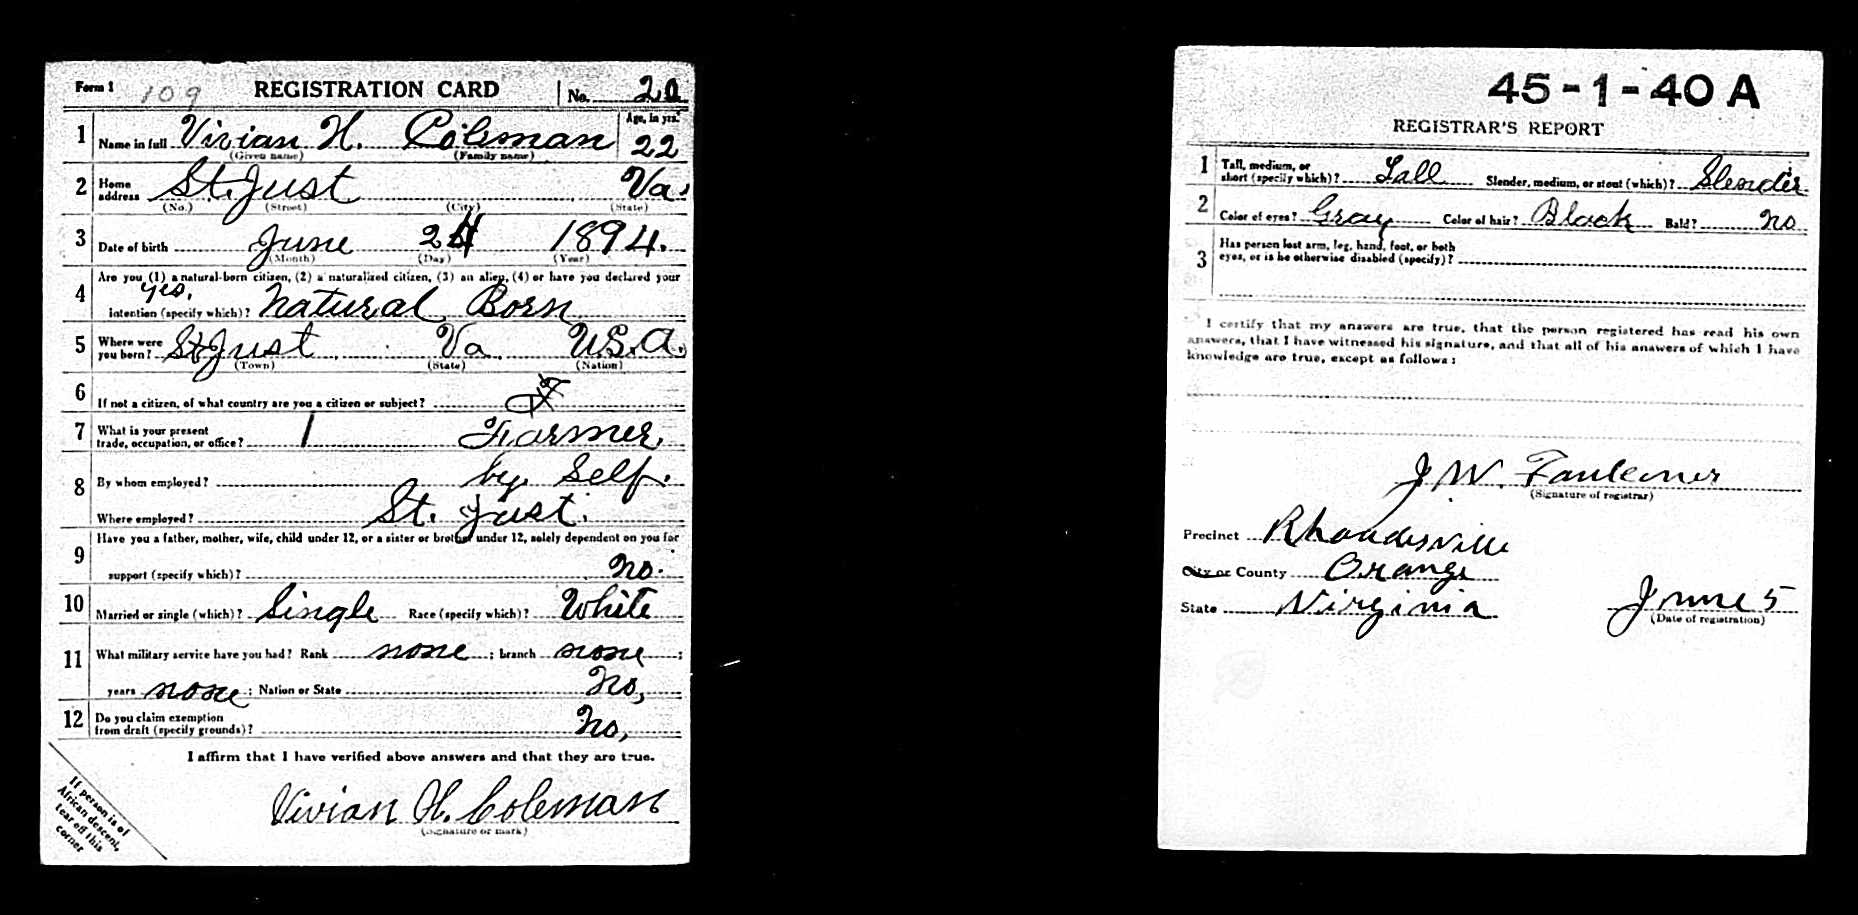 Form 1 109 REGISTRATION CARD No. 20
1 Name in full Vivian H. Coleman Age, in yrs. 22
(Given name) (Family name)
2 Home address St. Just Va.
(No.) (Street) (City) (State)
3 Date of birth June 24 1894.
(Month) (Day) (Year)
4 Are you (1) a natural-born citizen, (2) a naturalized citizen, (3) an alien, (4) or have you declared your
yes.
intention (specify which)? Natural Born
5 Where were you born? St Just Va U.S.A.
(Town) (State) (Nation)
6 If not a citizen, of what country are you a citizen or subject?
7 What is your present
trade, occupation, or office? 1 Farmer.
8 By whom employed? by Self.
Where employed? St. Just.
9 Have you a father, mother, wife, child under 12, or a sister or brother under 12, solely dependent on you for
support (specify which)? no.
10 Married or single (which)? Single Race (specify which)? White
11 What military service have you had? Rank none ; branch none ;
years none ; Nation or State No,
12 Do you claim exemption
from draft (specify grounds)? No,
I affirm that I have verified above answers and that they are true.
Vivian H. Coleman
(Signature or mark)
If person is of
African descent,
tear off this
corner
45-1-40 A
REGISTRAR'S REPORT
1 Tall, medium, or
short (specify which)? Tall Slender, medium, or stout (which)? Slender
2 Color of eyes? Gray Color of hair? Black Bald? no
3 Has person lost arm, leg, hand, foot, or both
eyes, or is he otherwise disabled (specify)?
I certify that my answers are true, that the person registered has read his own
answers, that I have witnessed his signature, and that all of his answers of which I have
knowledge are true, except as follows:
J W. Faulconer
(Signature of registrar)
Precinct Rhoadesville
City or County Orange
State Virginia June 5
(Date of registration)